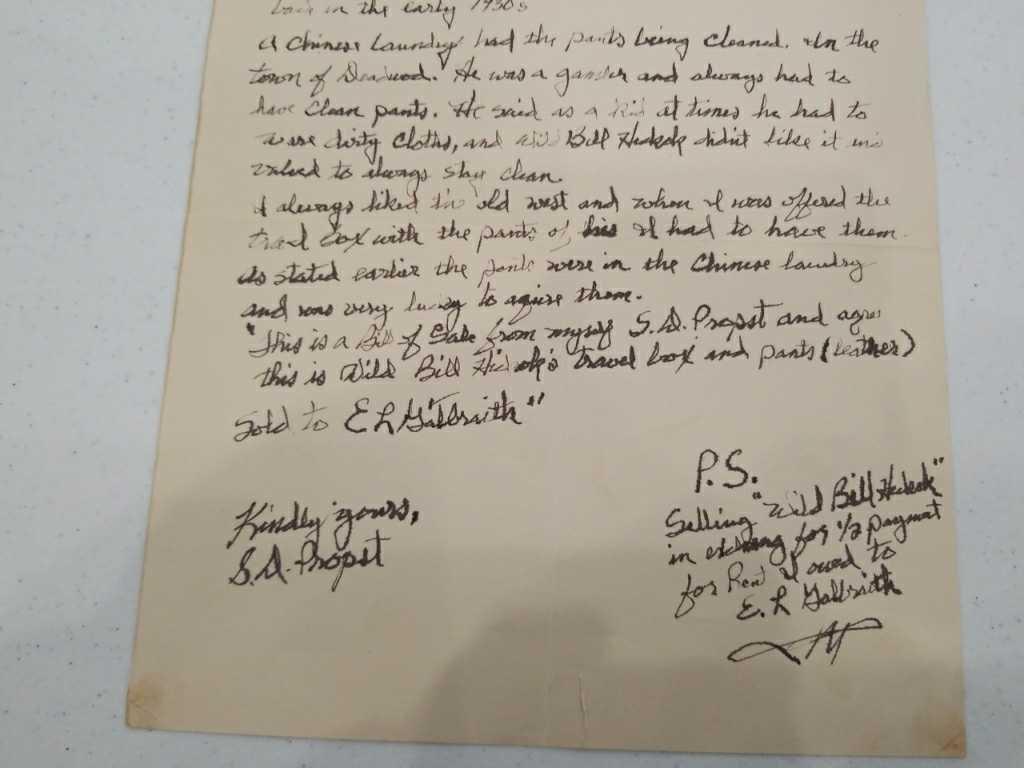 in the early 1930s
A Chinese Laundry had the pants being cleaned. In the
town of Deadwood. He was a and always had to
have clean pants. He said as a kid at times he had to
dirty cloths, and Wild Bill didn't like it
to always stay clean.
I always liked the old west and when I was offered the
box with the pants of his I had to have them.
As stated earlier the pants were in the Chinese laundry
and was very to them.
"This is a Bill of Sale from myself S.D. Propst and
this is Wild Bill travel box and pants (leather)
Sold to E L Galbraith"
Kindly yours,
S.D. Propst
P.S.
Selling "Wild Bill
in for 1/2 payment
for Rent I owed to
E. L Galbraith